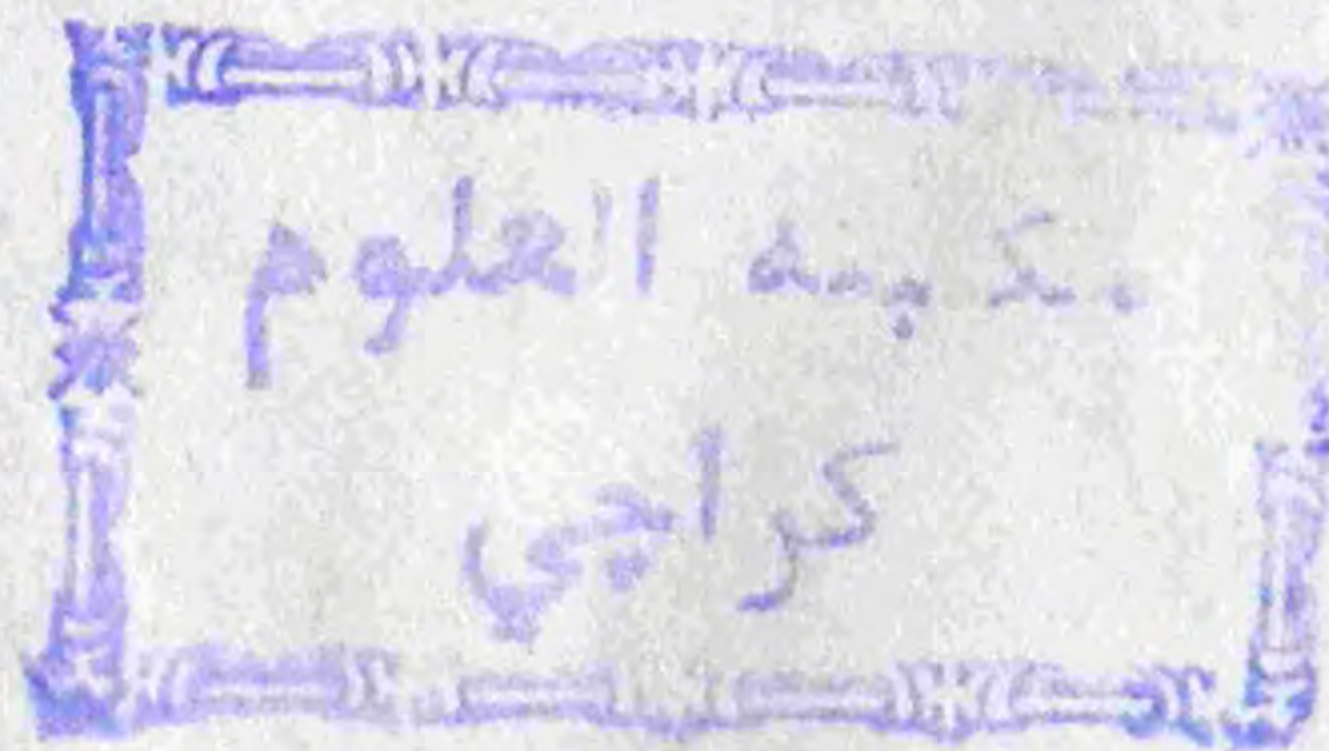 مکتبہ العلوم
کراچی